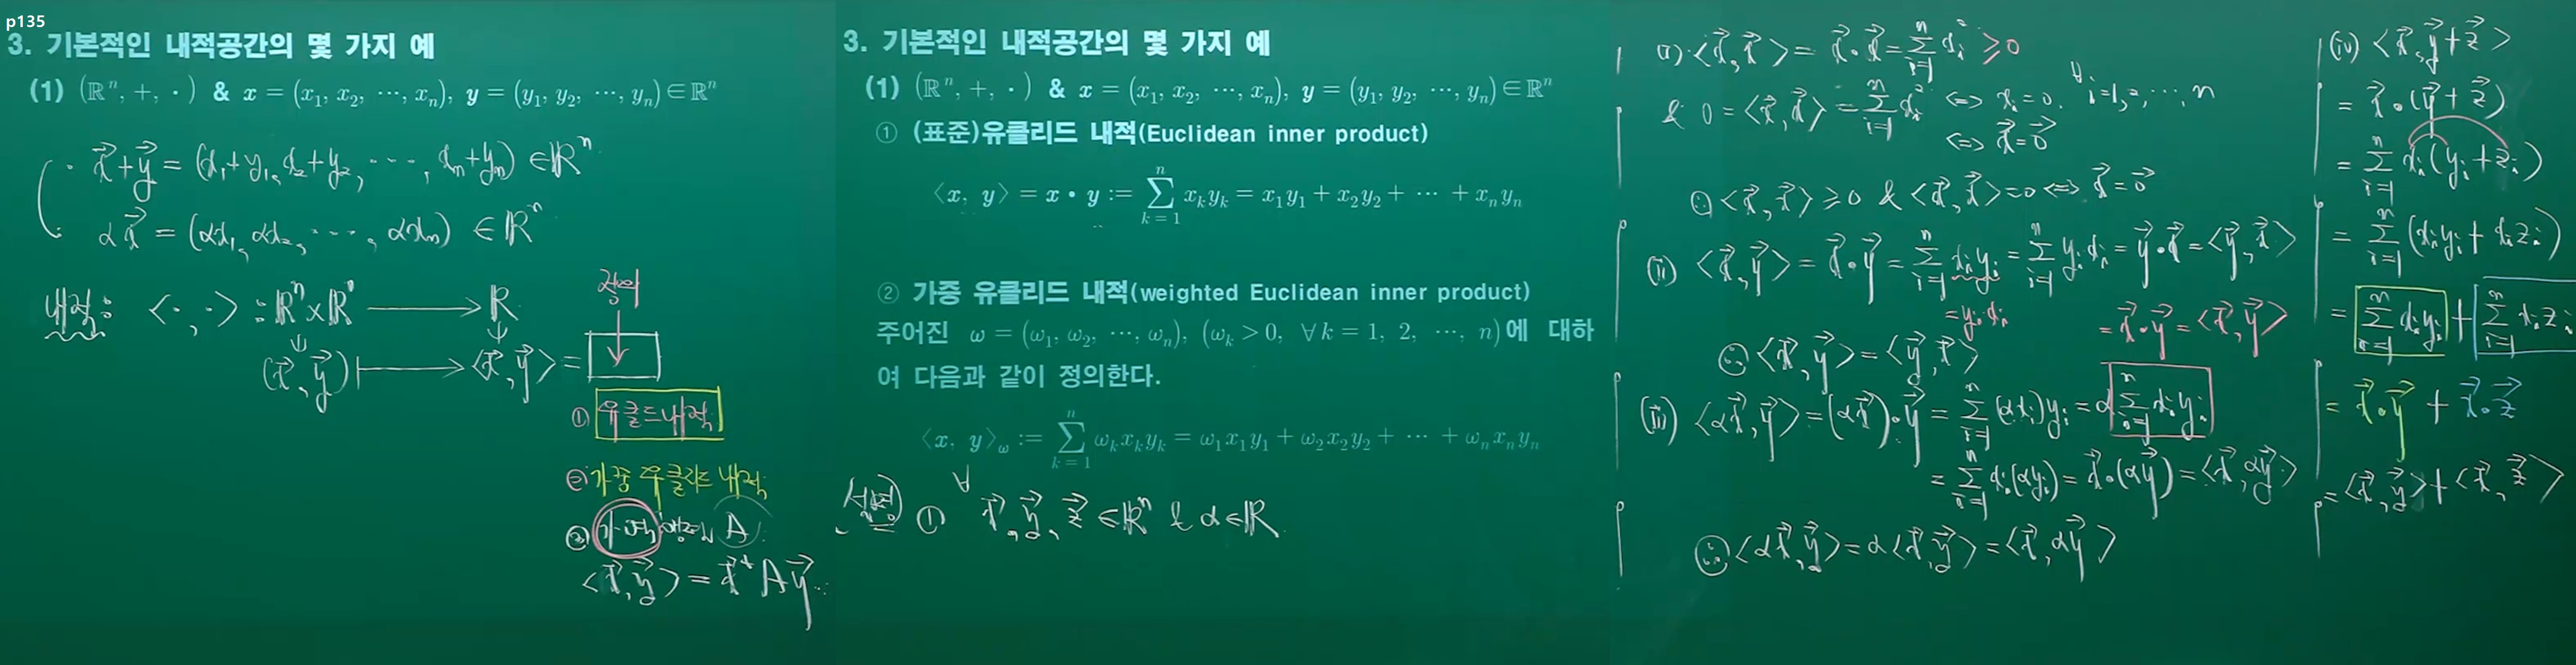 p135
3. 기본적인 내적공간의 몇 가지 예
(1) (ℝⁿ, +, ·) & x = (x₁, x₂, ···, xₙ), y = (y₁, y₂, ···, yₙ) ∈ ℝⁿ
x⃗+y⃗ = (x₁+y₁, x₂+y₂, ···, xₙ+yₙ) ∈ ℝⁿ
αx⃗ = (αx₁, αx₂, ···, αxₙ) ∈ ℝⁿ
내적: <·,·> : ℝⁿ×ℝⁿ → ℝ
(x⃗, y⃗) ↦ <x⃗, y⃗> =
① 유클리드내적
② 가중 유클리드 내적
③ A
<x⃗, y⃗> = x⃗ᵗAy⃗
3. 기본적인 내적공간의 몇 가지 예
(1) (ℝⁿ, +, ·) & x = (x₁, x₂, ···, xₙ), y = (y₁, y₂, ···, yₙ) ∈ ℝⁿ
① (표준)유클리드 내적(Euclidean inner product)
<x, y> = x • y := Σₖ₌₁ⁿ xₖyₖ = x₁y₁ + x₂y₂ + ··· + xₙyₙ
② 가중 유클리드 내적(weighted Euclidean inner product)
주어진 ω = (ω₁, ω₂, ···, ωₙ), (ωₖ > 0, ∀k = 1, 2, ···, n)에 대하
여 다음과 같이 정의한다.
<x, y>ω := Σₖ₌₁ⁿ ωₖxₖyₖ = ω₁x₁y₁ + ω₂x₂y₂ + ··· + ωₙxₙyₙ
설명) ① ∀x⃗, y⃗, z⃗ ∈ ℝⁿ & α ∈ ℝ
(i) <x⃗, x⃗> = x⃗·x⃗ = Σᵢ₌₁ⁿ xᵢ² ≥ 0
& 0 = <x⃗, x⃗> = Σᵢ₌₁ⁿ xᵢ² ⇔ xᵢ = 0, ∀i=1,2,···,n
⇔ x⃗ = 0⃗
∴ <x⃗, x⃗> ≥ 0 & <x⃗, x⃗> = 0 ⇔ x⃗ = 0⃗
(ii) <x⃗, y⃗> = x⃗·y⃗ = Σᵢ₌₁ⁿ xᵢyᵢ = Σᵢ₌₁ⁿ yᵢxᵢ = y⃗·x⃗ = <y⃗, x⃗>
= yᵢxᵢ
∴ <x⃗, y⃗> = <y⃗, x⃗>
= x⃗·y⃗ = <x⃗, y⃗>
(iii) <αx⃗, y⃗> = (αx⃗)·y⃗ = Σᵢ₌₁ⁿ (αxᵢ)yᵢ = α Σᵢ₌₁ⁿ xᵢyᵢ
= Σᵢ₌₁ⁿ xᵢ(αyᵢ) = x⃗·(αy⃗) = <x⃗, αy⃗>
∴ <αx⃗, y⃗> = α<x⃗, y⃗> = <x⃗, αy⃗>
(iv) <x⃗, y⃗+z⃗>
= x⃗·(y⃗+z⃗)
= Σᵢ₌₁ⁿ xᵢ(yᵢ+zᵢ)
= Σᵢ₌₁ⁿ (xᵢyᵢ + xᵢzᵢ)
= Σᵢ₌₁ⁿ xᵢyᵢ + Σᵢ₌₁ⁿ xᵢzᵢ
= x⃗·y⃗ + x⃗·z⃗
= <x⃗, y⃗> + <x⃗, z⃗>